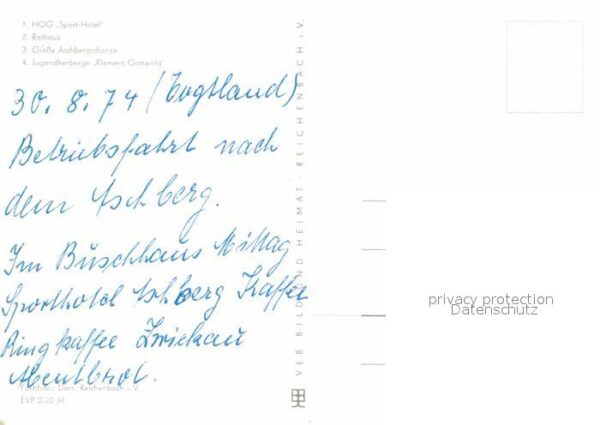 1. HOG „Sport-Hotel"
2. Rathaus
3. Große Aschbergschanze
4. Jugendherberge „Klement Gottwald"
30. 8. 74 (Vogtland)
Betriebsfahrt nach
dem Aschberg.
Im Buschhaus Mittag
Sporthotel Aschberg Kaffee
Ringkaffee Zwickau
Abentbrot.
Farbfoto: Darr, Reichenbach i. V.
EVP 0,20 M
VEB BILD UND HEIMAT · REICHENBACH i. V.
privacy protection
Datenschutz